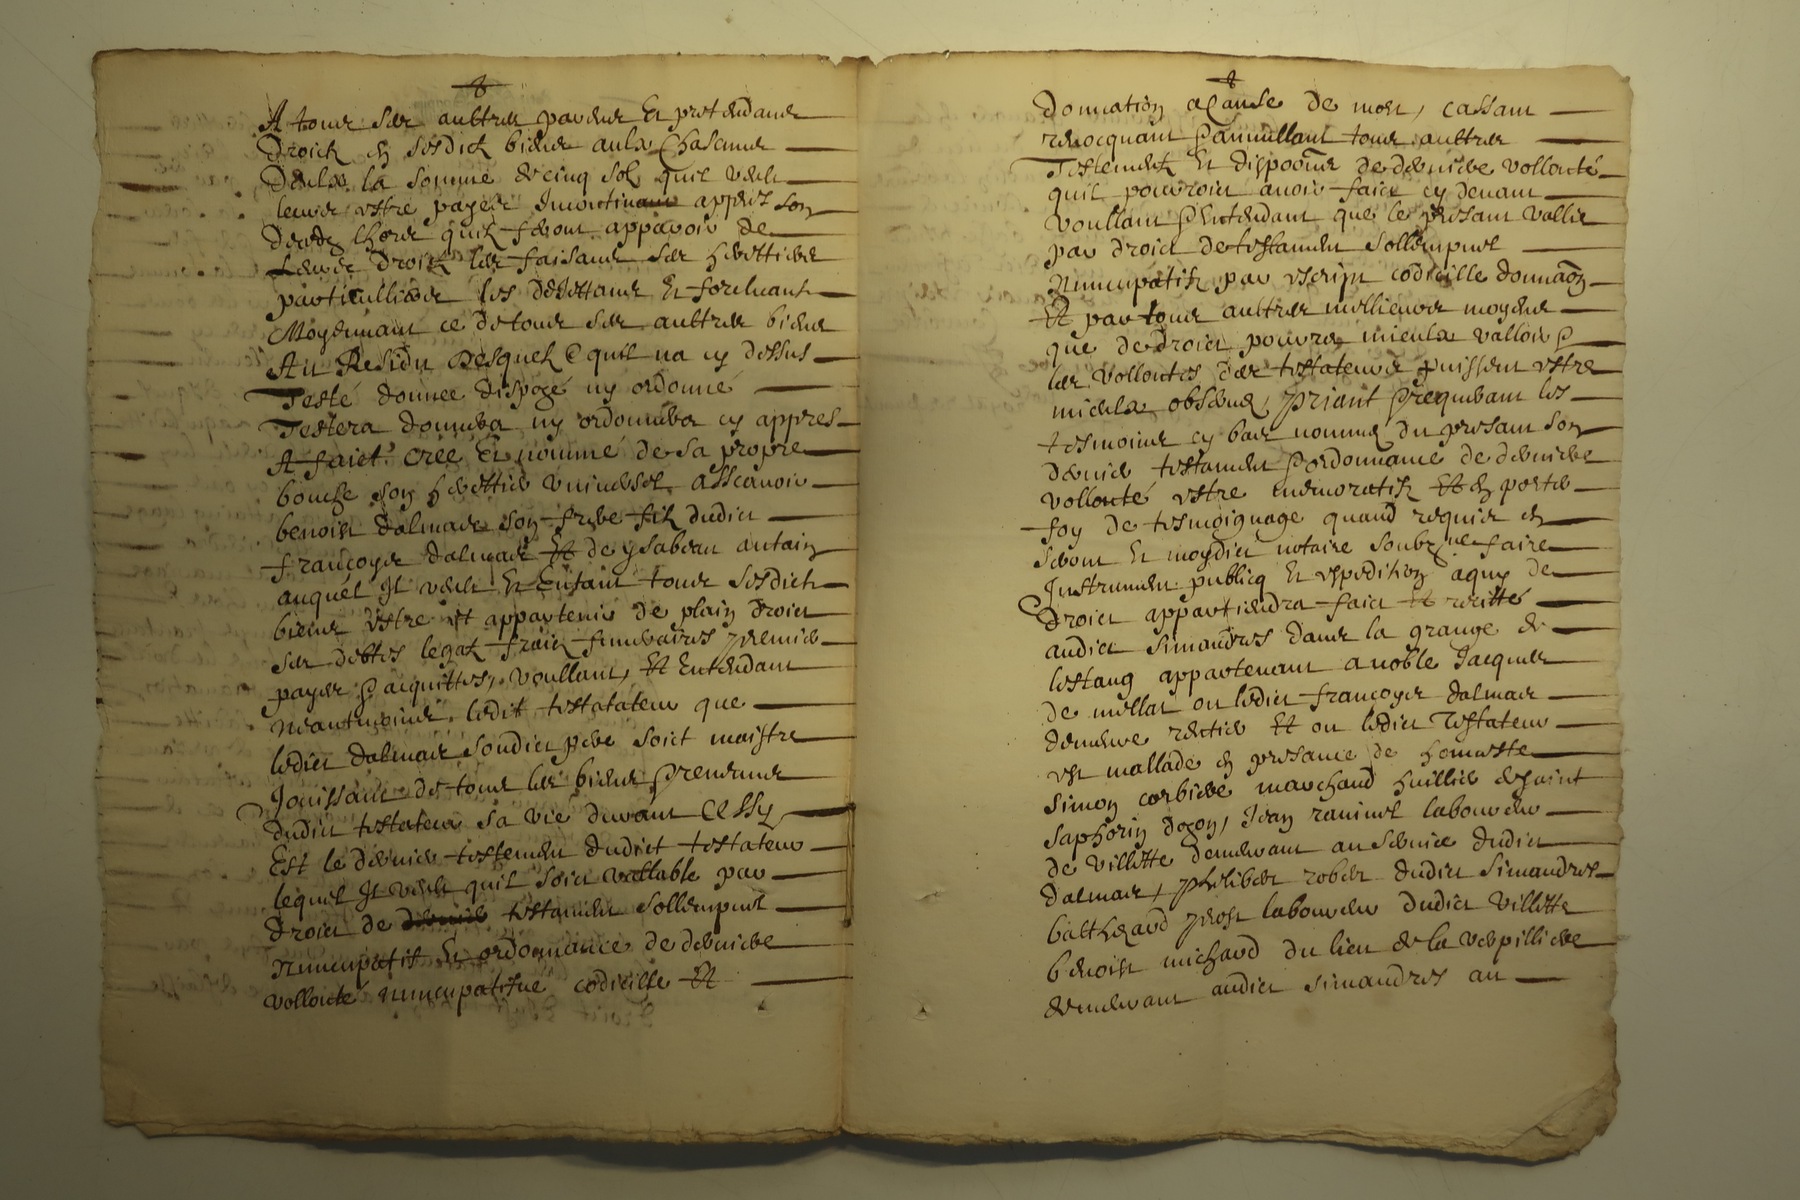 A tous ses aultres parens Et pretendans
Droict en sesdictz biens aulx Chascune
Deulx la somme de cinq solz quil veult
leurs estre payés Incontinant apprés son
Decedz lhors quilz feront apparoir de
Leurs droictz les faisant ses herittiers
particulliers les dejettant Et forcluant
Moyennant ce de tous ses aultres biens
Au Residu Desquelz & quil na cy dessus
Testé donnee dispozé ny ordonné
Testera donnera ny ordonnera cy appres
A faict creé Et nommé de sa propre
bouche son herittier universel asscavoir
benoist dalmais son frere filz dudict
françoys dalmais Et de ysabeau antain
auquel Il veult Et Entant tous sesdictz
biens estre et appartenir de plain droict
ses debtes legatz fraictz funeraires premier
payés & acquittes, voullant, Et Entendant
Neantmoins ledit testatateur que
ledict dalmais sondict pere soict maistre
Jouissant de tous les biens & revenus
dudict testateur sa vie durant Cessy
Est le dernier testement dudict testateur
lequel Il veult quil soict vallable par
droict de testament sollempnel
Nuncupatif Et ordonnance de derniere
vollonté nuncupatifve codicille Et
donnation a Cause de mort, cassant
revocquant & annullant tous aultres
Testementz Et dispoons de derniere vollonté
quil pourroict avoir faict cy devant
voullant & entendant que le presant vallie
par droict de testament sollempnel
Nuncupatif par escript codicille donnaon
Et par tous aultres mellieurs moyens
que de droict pourra mieulx valloir &
les vollontes des testateurs puissent estre
mieulx observés, priant & requerant les
tesmoins cy bas nommés du presant son
dernier testament & ordonnance de derniere
vollonté estre memoratifz Et en porter
foy de tesmoignage quand requis en
seront Et moydict notaire soubzne faire
Instrument publicq Et expedition a quy de
Droict appartiendra faict et recitté
audict simandres dans la grange de
lestang appartenant a noble Jacques
de mellat ou ledict françoys dalmais
demeure rentier Et ou ledict Testateur
est mallade en presance de honneste
simon corbiere marchand huillier de saint
saphorin dozon, Jean ravinel laboureur
de villette demeurant au service dudict
dalmais, philibert robert dudict simandres
balthezard prost laboureur dudict villette
benoist michard du lieu de la verpilliere
demeurant audict simandres au